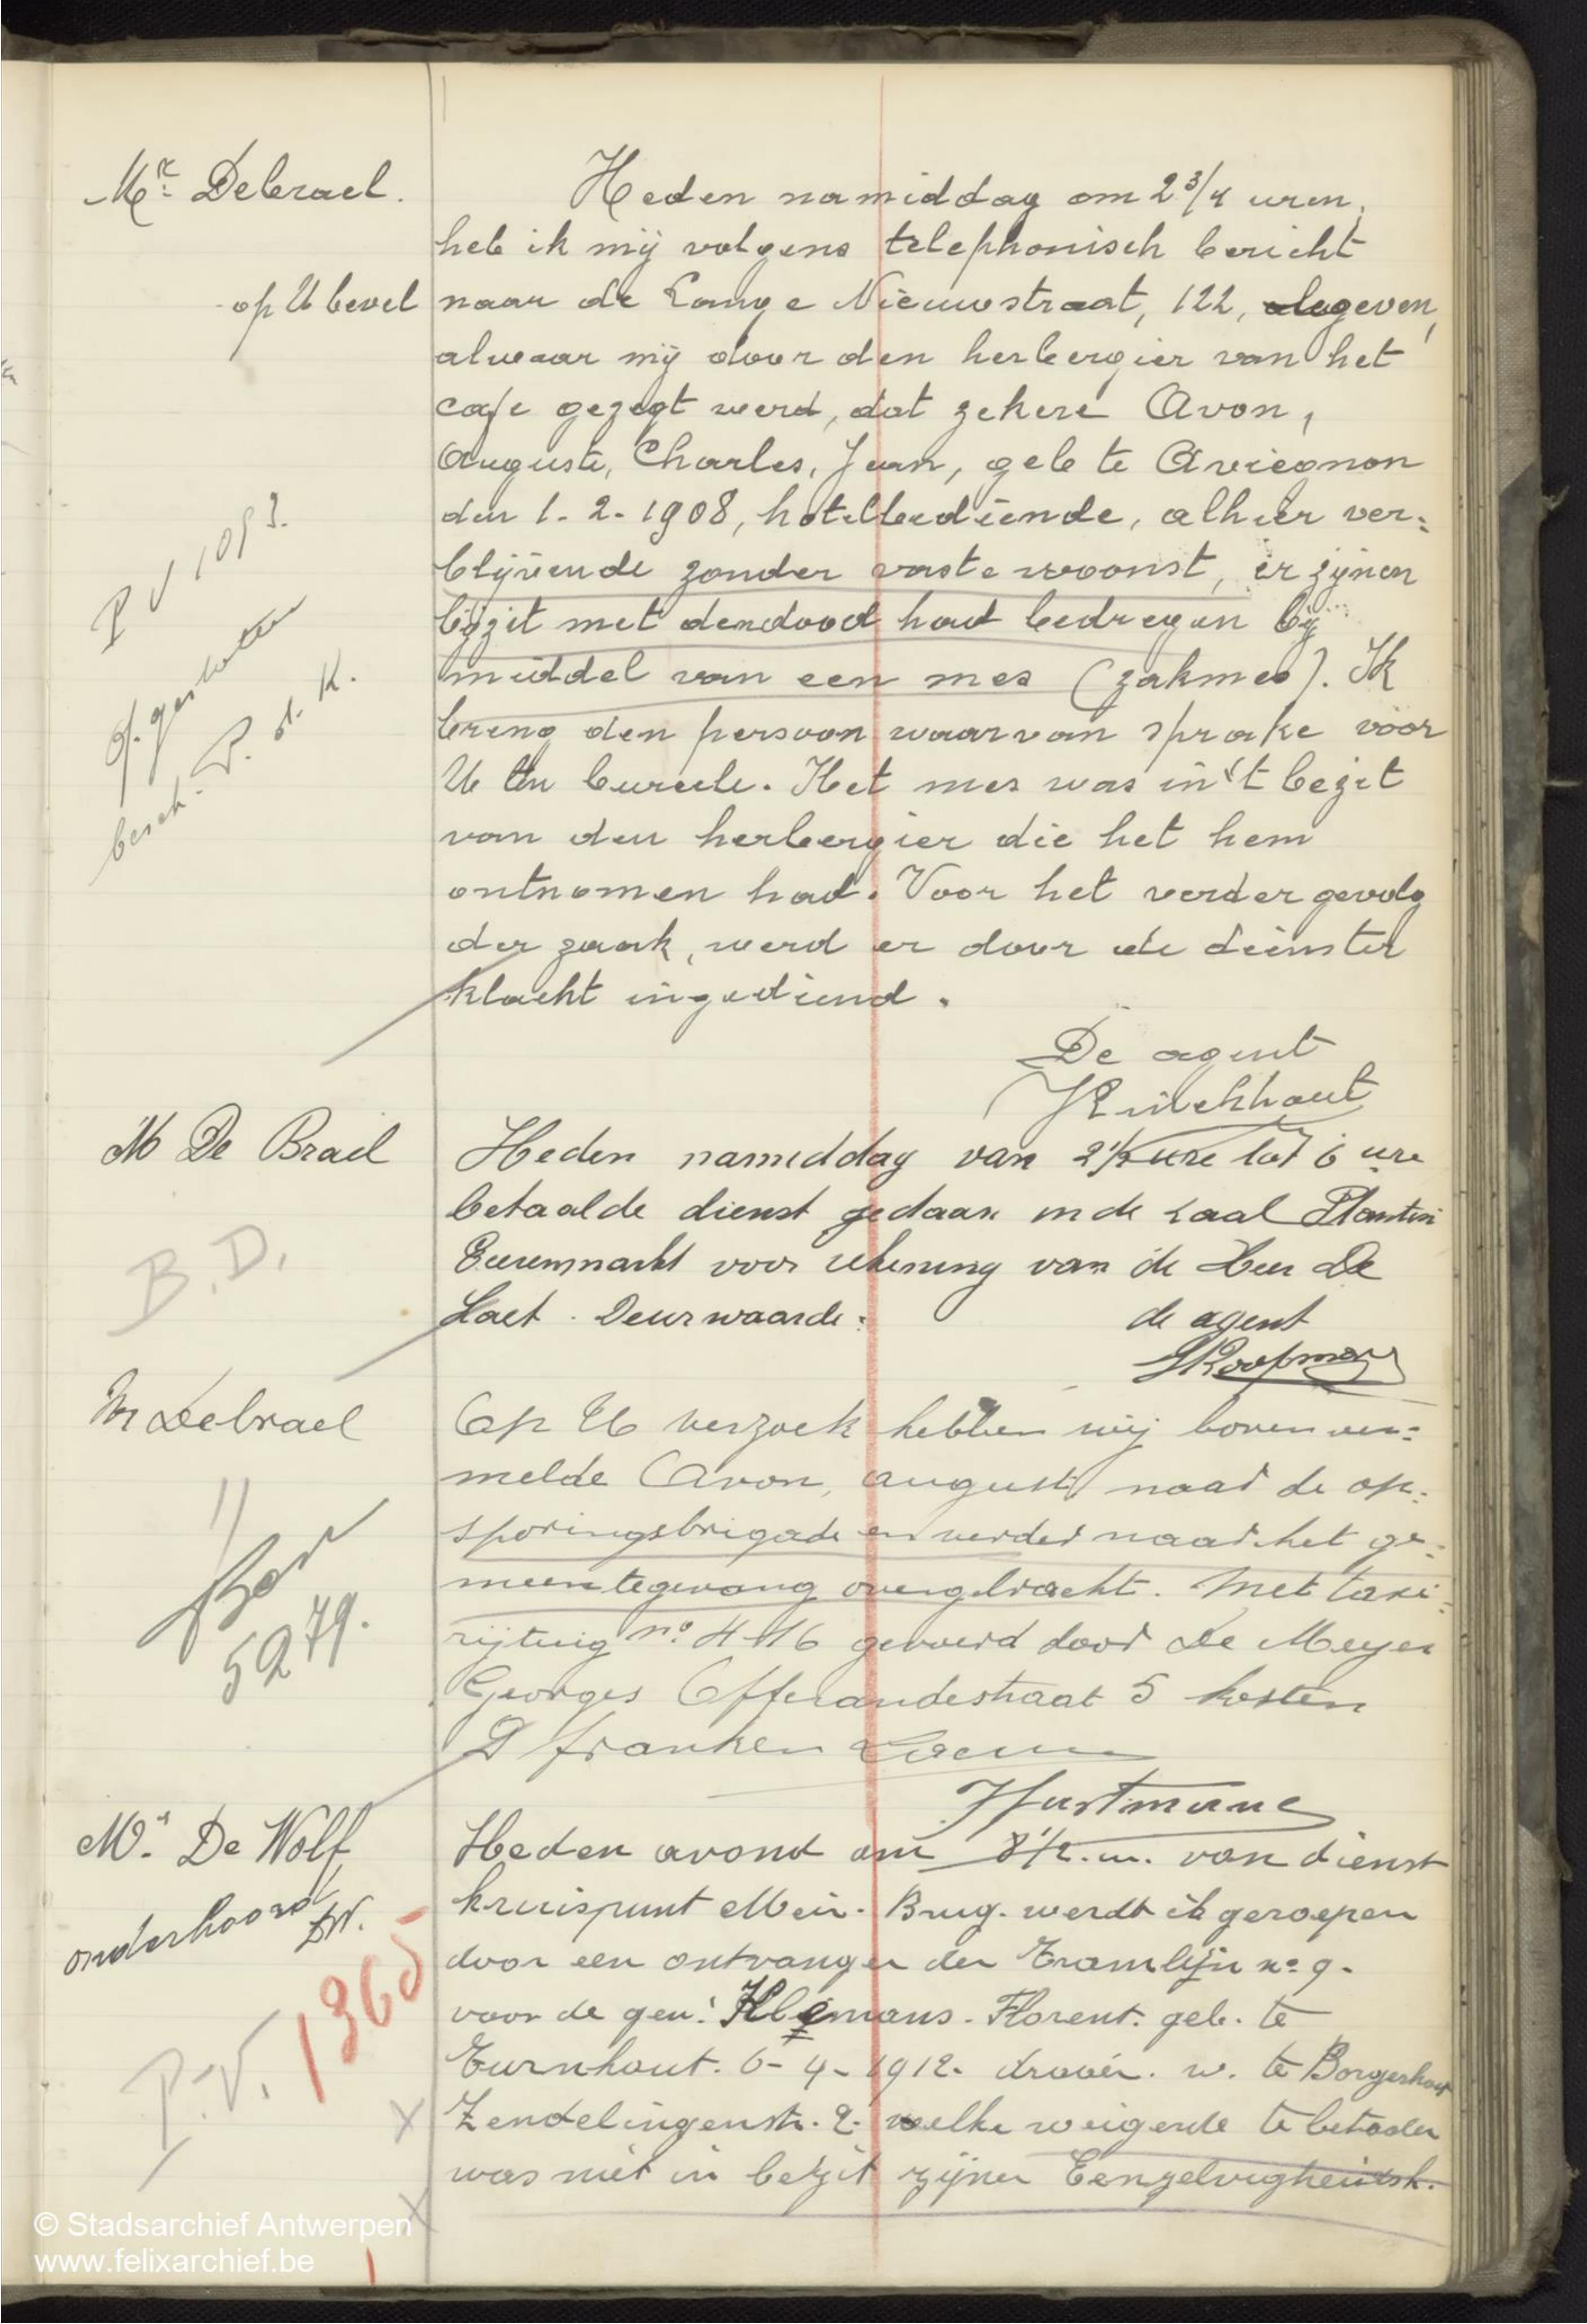 Mr. Debrael.
Heden namiddag om 2 3/4 uren,
heb ik mij volgens telephonisch bericht
op U bevel
naar de Lange Nieuwstraat, 122, begeven,
alwaar mij door den herbergier van het
cafe gezegt werd, dat zekere Avon,
Auguste, Charles, Jean, geb te Aviegnon
den 1-2-1908, hotelbediende, alhier ver=
blijvende zonder vaste woonst, er zijnen
bijzit met dendood had bedregen bij
middel van een mes (zakmes). Ik
breng den persoon waarvan sprake voor
U ten bureele. Het mes was in 't bezit
van den herbergier die het hem
ontnomen had. Voor het verder gevolg
der zaak, werd er door de dienster
klacht ingediend.
P V 1093.
opgesloten
besch. P. d. K.
De agent
M De Brael
Heden namiddag van 2 1/2 ure tot 6 ure
betaalde dienst gedaan in de zaal Plantin
Eiermarkt voor rekening van de Heer De
Laet. Deurwaarde:
B.D.
de agent
Koopman
M Debrael
Op U verzoek hebben wij boven ver=
melde Avon, august naar de op=
sporingsbrigade en verder naar het ge=
meentegevang overgebracht. Met taxi=
rijtuig no 4116 gevoerd door De Meyer
Georges Offerandestraat 5 kosten
franken
5279.
Hartmann
Mr. De Wolf
Heden avond om 8 1/2. u. van dienst
kruispunt Meir. Brug. werdt ik geroepen
door een ontvanger der Tramlijn no 9.
voor de gen: Klemans. Florent. geb. te
Turnhout. 6-4-1912. w. te Borgerhout
Zendelingenstr. 2. welke weigerde te betaalen
was niet in bezit zijner Eenzelvigheidsk.
onderhoord
DW.
P.V. 1365
© Stadsarchief Antwerpen
www.felixarchief.be